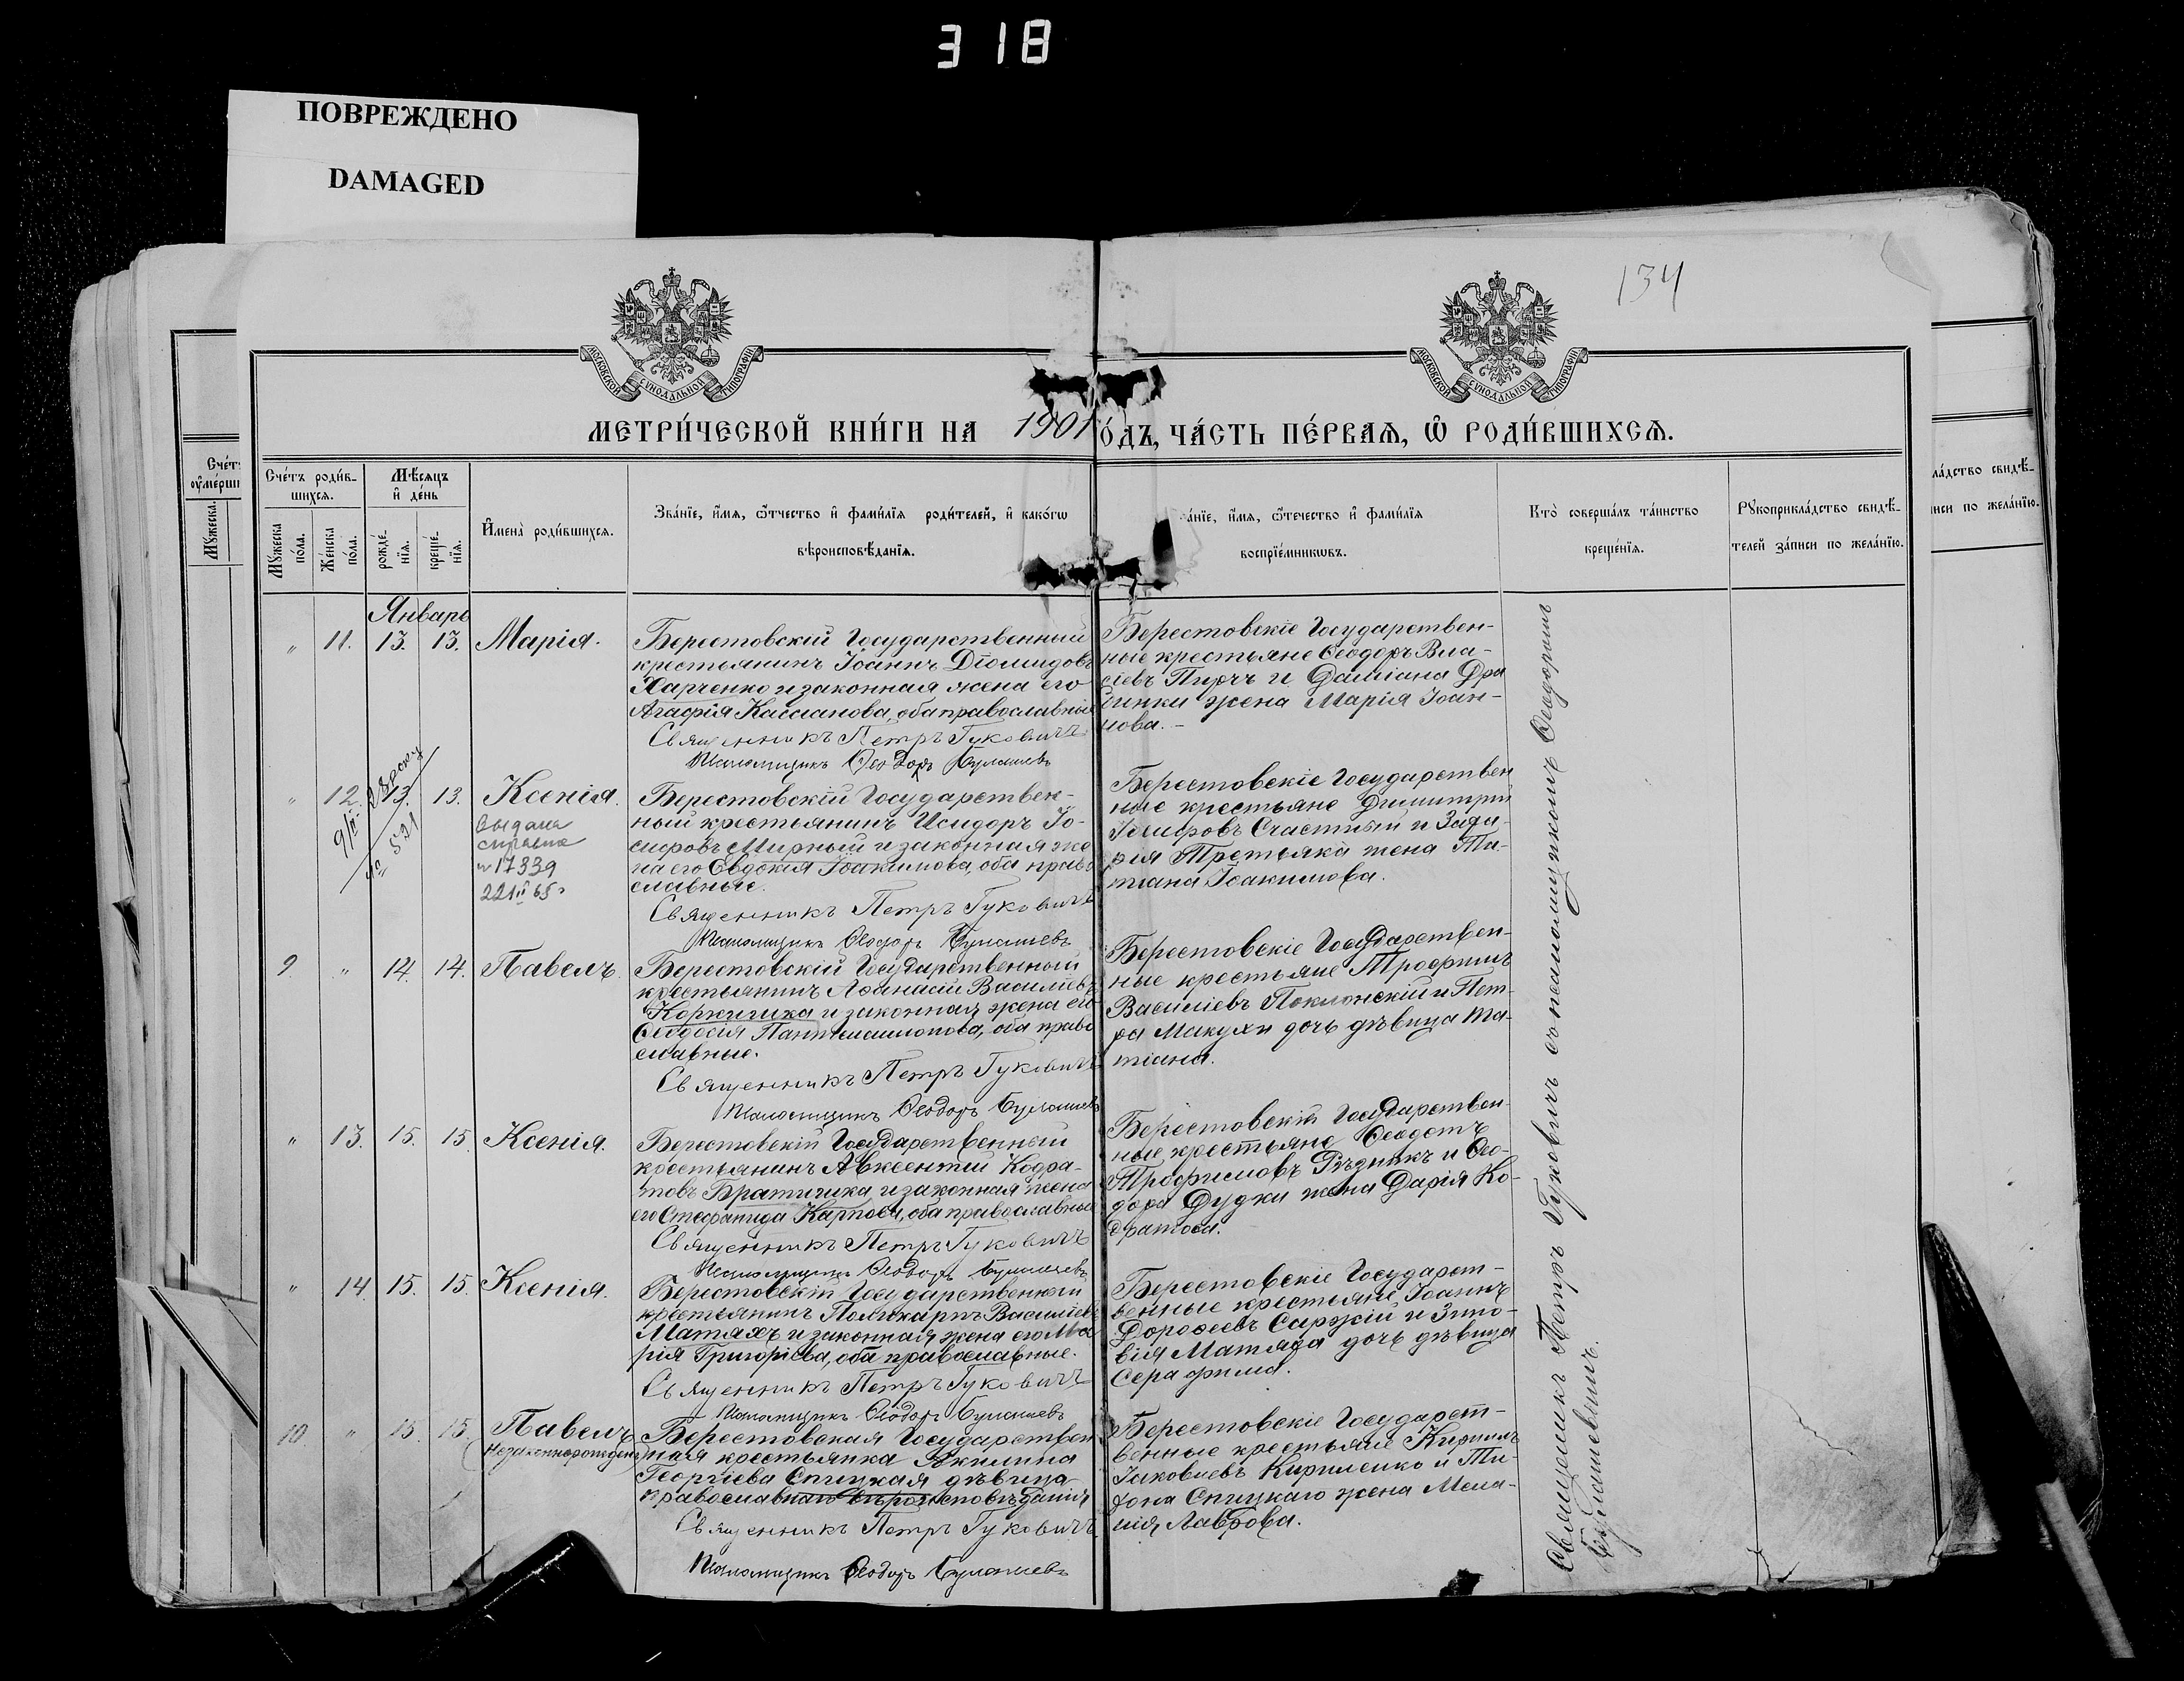 318
ПОВРЕЖДЕНО
DAMAGED
134
МОСКОВСКОЙ СѴНОДАЛЬНОЙ ТИПОГРАФІИ
МОСКОВСКОЙ СѴНОДАЛЬНОЙ ТИПОГРАФІИ
МЕТРИ́ЧЕСКОЙ КНИ́ГИ НА 1901
О́ДЪ, ЧА́СТЬ ПЕ́РВАѦ, Ѡ҆ РОДИ́ВШИХСѦ.
Сче́тъ роди́в-
шихсѧ.
Мꙋ́жеска по́ла.
Же́нска по́ла.
Мѣ́сѧцъ
и҆ де́нь
рожде́нїѧ.
креще́нїѧ.
И҆мена̀ роди́вшихсѧ.
Зва́нїе, и҆́мѧ, ѻ҆́тчество и҆ фами́лїѧ роди́телей, и҆ како́гѡ
вѣроисповѣ́данїѧ.
а́нїе, и҆́мѧ, ѻ҆́течество и҆ фами́лїѧ
воспрїе́мникѡвъ.
Кто̀ соверша́лъ та́инство
креще́нїѧ.
Рꙋкоприкла́дство свидѣ́-
телей за́писи по жела́нїю.
Январь
" 11. 13. 13. Марія.
Берестовскій Государственный
крестьянинъ Іоаннъ Діомидовъ
Харченко и законная жена его
Агафія Кассіанова, оба православные
Священникъ Петръ Гуковичъ
Псаломщикъ Ѳеодоръ Булашевъ
Берестовскіе Государствен-
ные крестьяне Ѳеодоръ Вла-
сіевъ Пирчъ и Даміана Дра
гинки жена Марія Іоан-
нова. -
" 12. 13. 13. Ксенія.
531
выдана
справка
№ 17339
22 II 65 г
Берестовскій Государствен-
ный крестьянинъ Исидоръ Іо-
сифовъ Мирный и законная же
на его Евдокія Іоакимова, оба право
славные.
Священникъ Петръ Гуковичъ
Псаломщикъ Ѳеодоръ Булашевъ
Берестовскіе Государствен
ные крестьяне Димитрій
Іосифовъ Счастный и Заха-
рія Третьяка жена Та-
тіана Іоакимова.
9 " 14. 14. Павелъ.
Берестовскій Государственный
крестьянинъ Аѳанасій Василіевъ
Коржичка и законная жена его
Ѳеодосія Пантелеимонова, оба право
славные.
Священникъ Петръ Гуковичъ
Псаломщикъ Ѳеодоръ Булашевъ
Берестовскіе Государствен-
ные крестьяне Трофимъ
Василіевъ Поклонскій и Пет-
ра Макухи дочь дѣвица Та-
тіана.
" 13. 15. 15. Ксенія.
Берестовскій Государственный
крестьянинъ Авксентій Кодра-
товъ Братичка и законная жена
его Стефанида Карпова, оба православные
Священникъ Петръ Гуковичъ
Псаломщикъ Ѳеодоръ Булашевъ
Берестовскій Государствен-
ные крестьяне Ѳеодотъ
Трофимовъ Рѣзникъ и Ѳео-
дора Дудки жена Дарія Ко-
дратова.
" 14. 15. 15. Ксенія.
Берестовскій Государственный
крестьянинъ Поликарпъ Василіевъ
Матяхъ и законная жена его Ма
рія Григоріева, оба православные.
Священникъ Петръ Гуковичъ
Псаломщикъ Ѳеодоръ Булашевъ
Берестовскіе Государст-
венные крестьяне Іоаннъ
Дороѳеевъ Саржій и Зино-
вія Матяха дочь дѣвица
Серафима.
10 " 15. 15. Павелъ
(Незаконнорожден)
Берестовская Государствен
ная крестьянка Акилина
Георгіева Спицкая дѣвица
православнаго вѣроисповѣданія
Священникъ Петръ Гуковичъ
Псаломщикъ Ѳеодоръ Булашевъ
Берестовскіе Государст-
венные крестьяне Кириллъ
Іаковлевъ Кириленко и Ти-
хона Спицкаго жена Мела-
нія Лаврова.
Священникъ Петръ Гуковичъ съ псаломщикомъ Ѳеодоромъ
Булашевымъ.
Сче́тъ
оу҆ме́рши
Мꙋ́жеска.
ла́дство свидѣ́-
писи по жела́нїю.